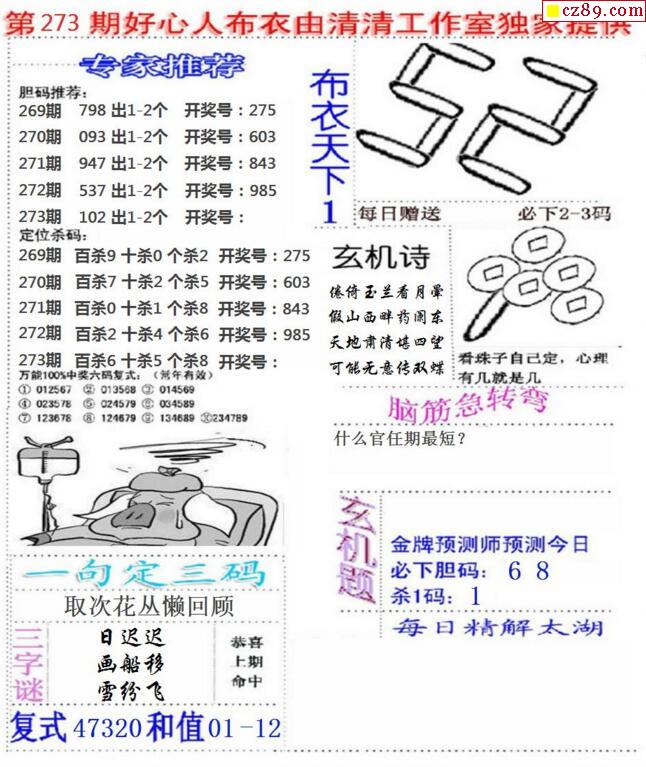 cz89.com
第273期好心人布衣由清清工作室独家提供
专家推荐
胆码推荐：
269期 798 出1-2个 开奖号：275
270期 093 出1-2个 开奖号：603
271期 947 出1-2个 开奖号：843
272期 537 出1-2个 开奖号：985
273期 102 出1-2个 开奖号：
定位杀码：
269期 百杀9 十杀0 个杀2 开奖号：275
270期 百杀7 十杀2 个杀5 开奖号：603
271期 百杀0 十杀1 个杀6 开奖号：843
272期 百杀2 十杀4 个杀6 开奖号：985
273期 百杀6 十杀5 个杀8 开奖号：
万能100%中奖六码复式：（常年有效）
① 012567 ② 013568 ③ 014569
④ 023578 ⑤ 024579 ⑥ 034589
⑦ 123678 ⑧ 124679 ⑨ 134689 ⑩234789
一句定三码
取次花丛懒回顾
三字谜
日迟迟
画船移
雪纷飞
恭喜
上期
命中
复式47320和值01-12
布衣天下1
52
每日赠送 必下2-3码
玄机诗
倦倚玉兰看月晕
假山西畔药阑东
天地肃清堪四望
可能无意传双蝶
看珠子自己定，心理
有几就是几
脑筋急转弯
什么官任期最短？
玄机题
金牌预测师预测今日
必下胆码： 6 8
杀1码： 1
每日精解太湖